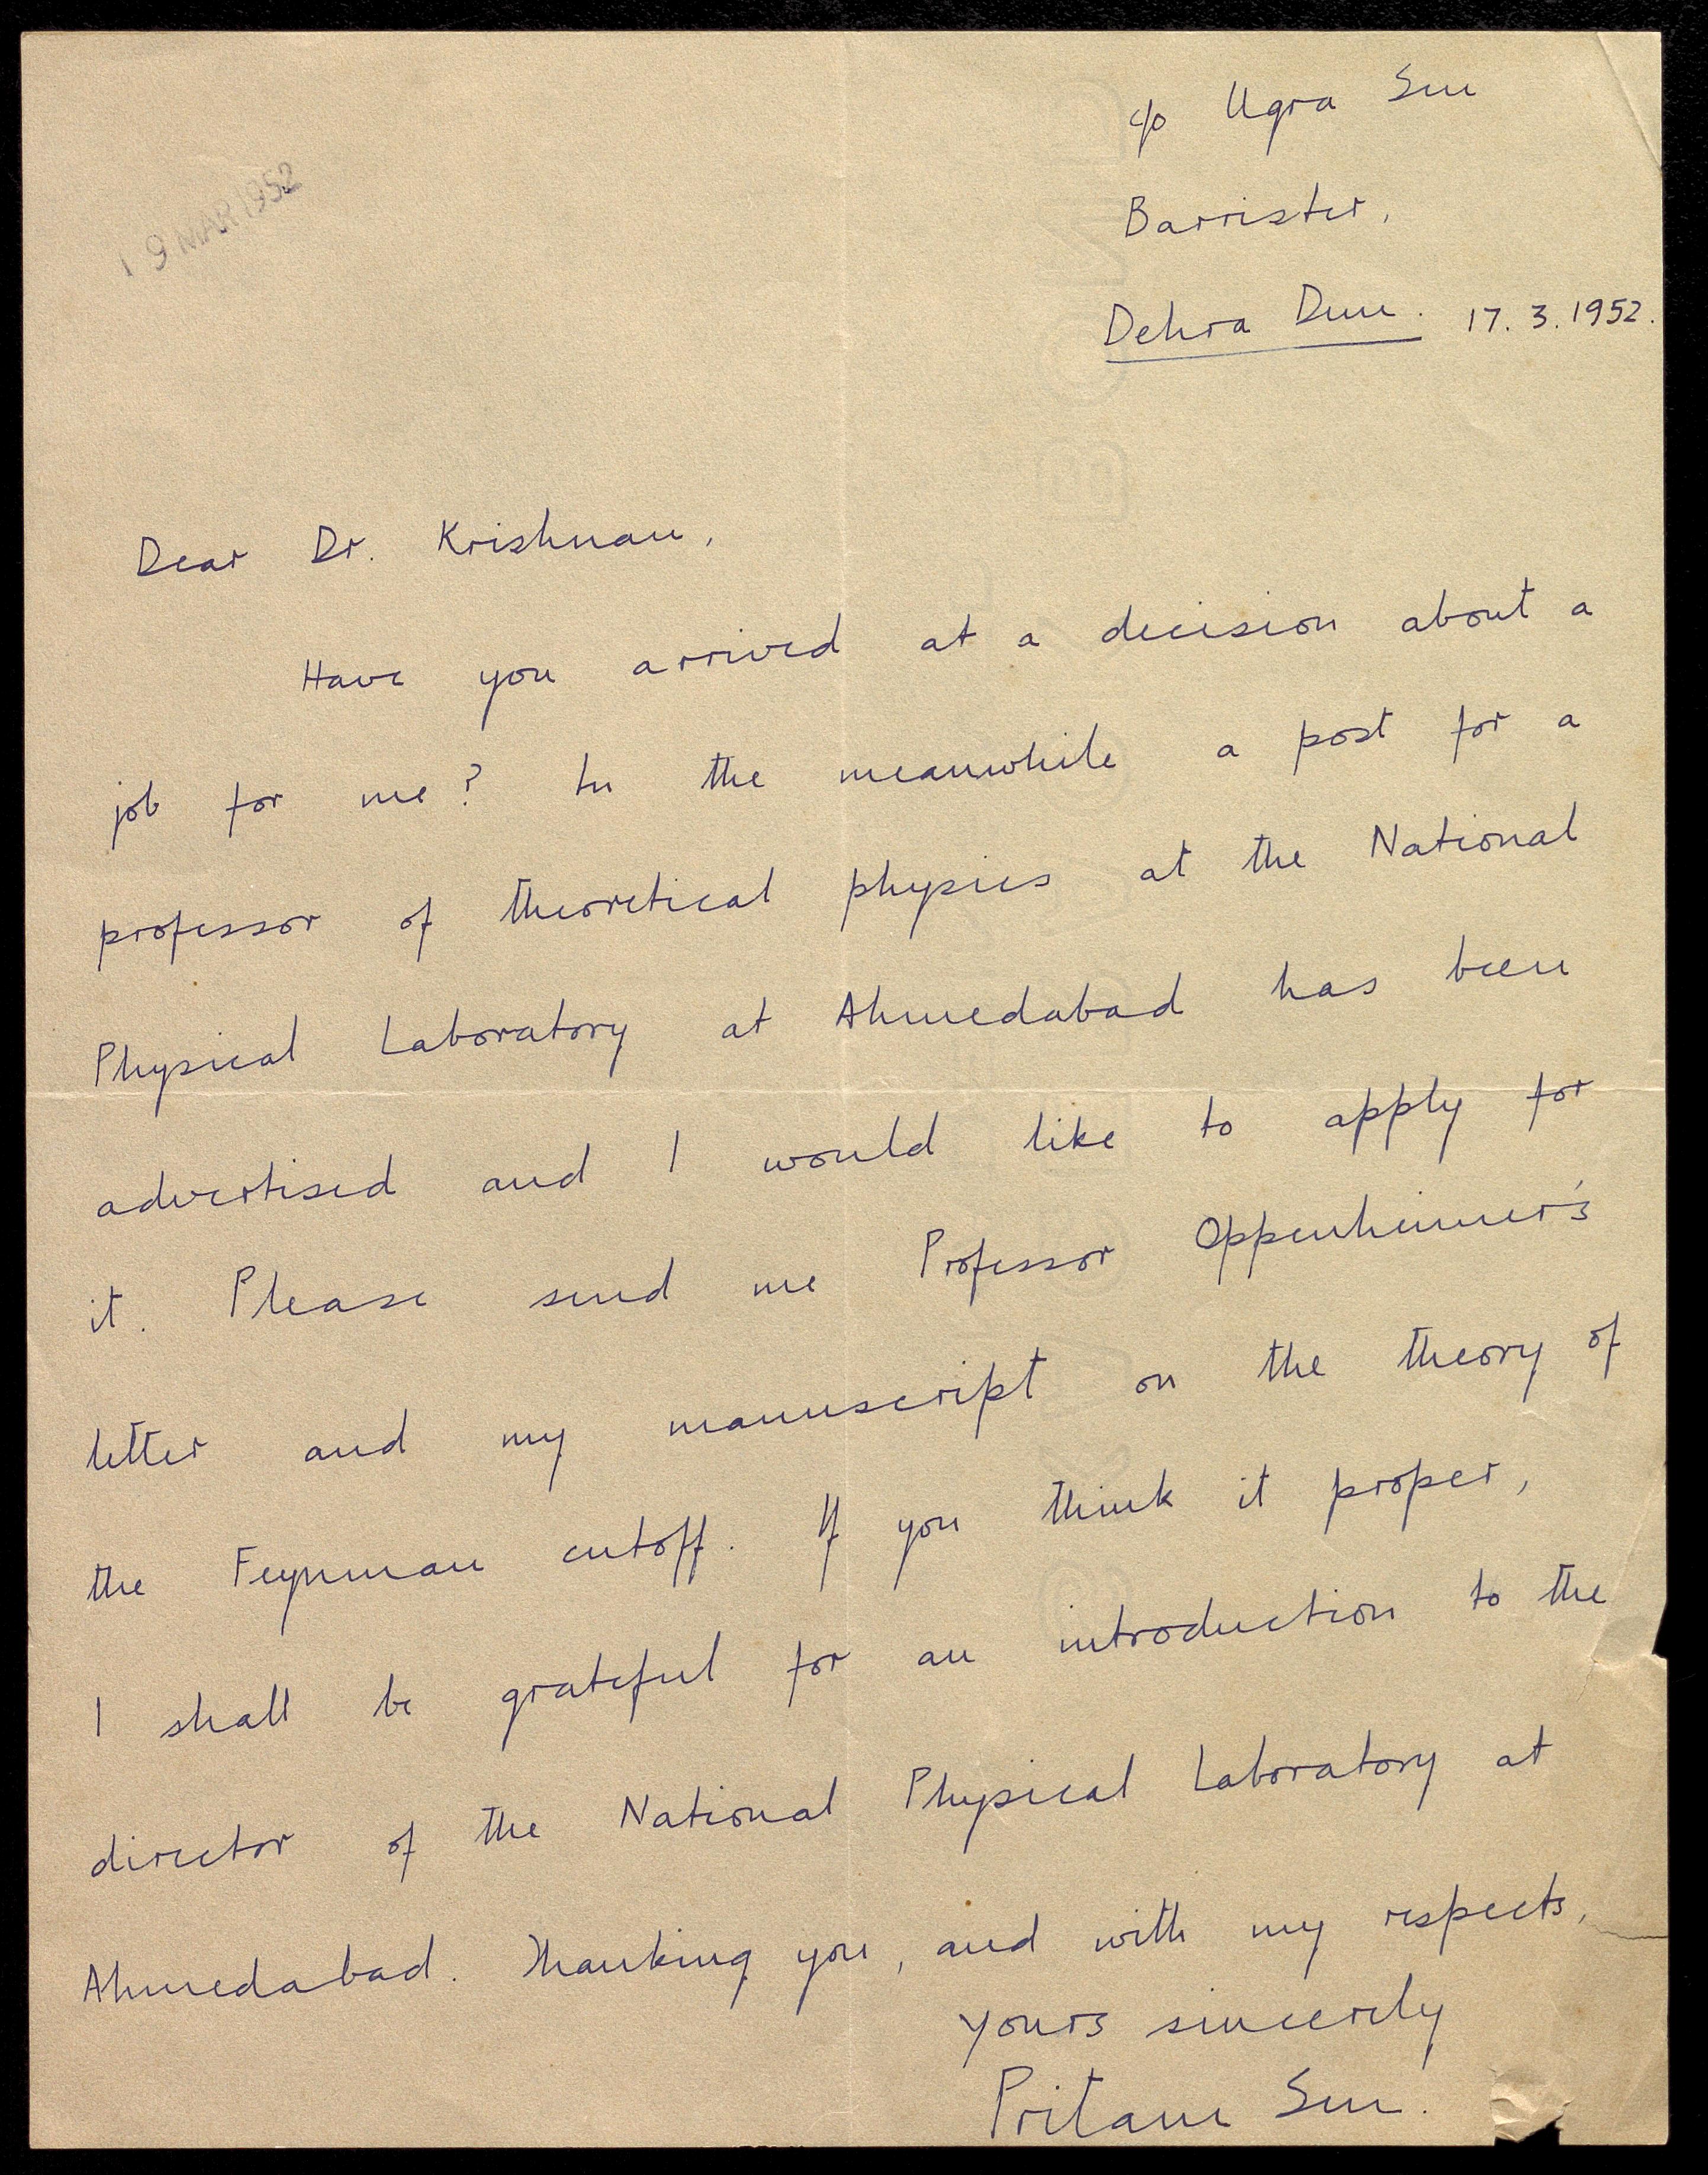 c/o Ugra Sen
19 MAR 1952
Barrister,
Dehra Dun. 17.3.1952.
Dear Dr. Krishnan,
Have you arrived at a decision about a
job for me? In the meanwhile a post for a
professor of theoretical physics at the National
Physical Laboratory at Ahmedabad has been
advertised and I would like to apply for
it. Please send me Professor Oppenheimer's
letter and my manuscript on the theory of
the Feynman cutoff. If you think it proper,
I shall be grateful for an introduction to the
director of the National Physical Laboratory at
Ahmedabad. Thanking you, and with my respects,
Yours sincerely
Pritam Sen.